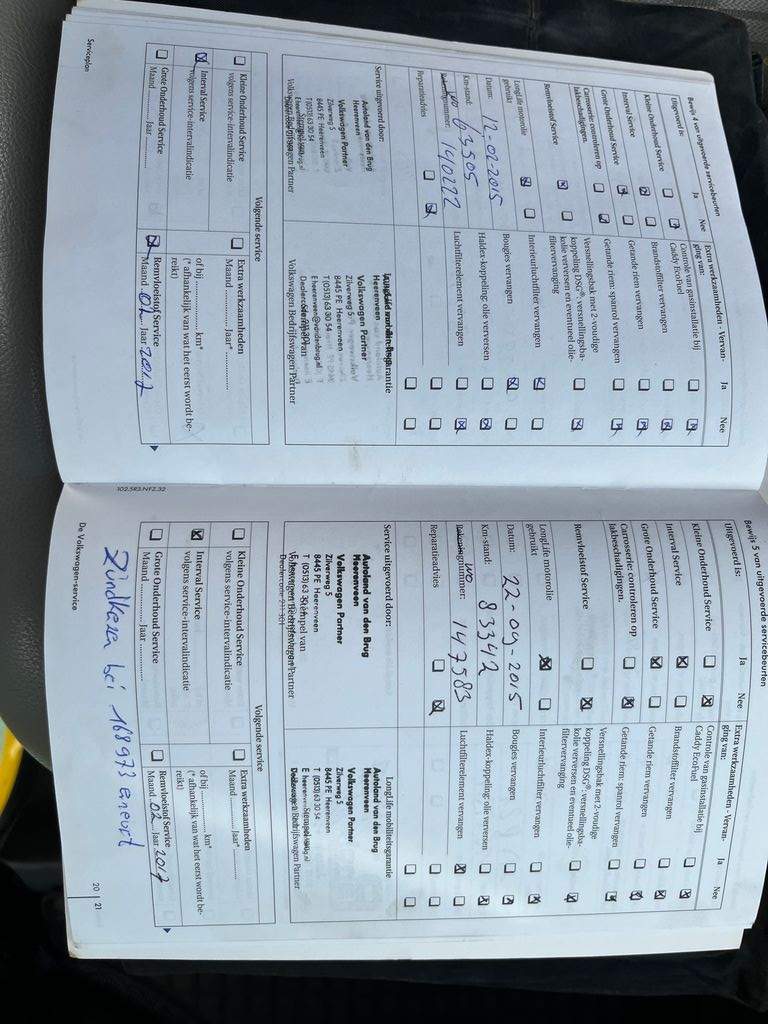 Bewijs 4 van uitgevoerde servicebeurten
Uitgevoerd is:
Ja Nee
Kleine Onderhoud Service
Interval Service
Grote Onderhoud Service
Carrosserie: controleren op
lakbeschadigingen.
Remvloeistof Service
LongLife motorolie
gebruikt
Datum: 12-02-2015
Km-stand: 63505
wo 140222
Reparatieadvies
Extra werkzaamheden - Vervan-
ging van:
Ja Nee
Controle van gasinstallatie bij
Caddy EcoFuel
Brandstoffilter vervangen
Getande riem vervangen
Getande riem: spanrol vervangen
Versnellingsbak met 2-voudige
koppeling DSG®: versnellingsba-
kolie verversen en eventueel olie-
filtervervanging
Interieurluchtfilter vervangen
Bougies vervangen
Haldex-koppeling: olie verversen
Luchtfilterelement vervangen
Service uitgevoerd door:
Autoland van den Brug
Heerenveen
Volkswagen Partner
Zilverweg 5
8445 PE Heerenveen
T (0513) 63 30 54
Stempel van
Volkswagen Bedrijfswagen Partner
LongLife mobiliteitsgarantie
Heerenveen
Volkswagen Partner
Zilverweg 5
8445 PE Heerenveen
T (0513) 63 30 54
E heerenveen@vandenbrug.nl
Stempel van
Volkswagen Bedrijfswagen Partner
Volgende service
Kleine Onderhoud Service
volgens service-intervalindicatie
Interval Service
volgens service-intervalindicatie
Grote Onderhoud Service
Maand ............ Jaar ............
Extra werkzaamheden
Maand ............ Jaar* ............
of bij ............ km*
(* afhankelijk van wat het eerst wordt be-
reikt)
Remvloeistof Service
Maand 02 Jaar 2017
Serviceplan
102.5R3.NFZ.32
Bewijs 5 van uitgevoerde servicebeurten
Uitgevoerd is:
Ja Nee
Kleine Onderhoud Service
Interval Service
Grote Onderhoud Service
Carrosserie: controleren op
lakbeschadigingen.
Remvloeistof Service
LongLife motorolie
gebruikt
Datum: 22-09-2015
Km-stand: 83342
wo 147583
Reparatieadvies
Extra werkzaamheden - Vervan-
ging van:
Ja Nee
Controle van gasinstallatie bij
Caddy EcoFuel
Brandstoffilter vervangen
Getande riem vervangen
Getande riem: spanrol vervangen
Versnellingsbak met 2-voudige
koppeling DSG®: versnellingsba-
kolie verversen en eventueel olie-
filtervervanging
Interieurluchtfilter vervangen
Bougies vervangen
Haldex-koppeling: olie verversen
Luchtfilterelement vervangen
Service uitgevoerd door:
Autoland van den Brug
Heerenveen
Volkswagen Partner
Zilverweg 5
8445 PE Heerenveen
T (0513) 63 30 54
Stempel van
Volkswagen Bedrijfswagen Partner
LongLife mobiliteitsgarantie
Autoland van den Brug
Heerenveen
Volkswagen Partner
Zilverweg 5
8445 PE Heerenveen
T (0513) 63 30 54
Stempel van
Volkswagen Bedrijfswagen Partner
Volgende service
Kleine Onderhoud Service
volgens service-intervalindicatie
Interval Service
volgens service-intervalindicatie
Grote Onderhoud Service
Maand ............ Jaar ............
Extra werkzaamheden
Maand ............ Jaar* ............
of bij ............ km*
(* afhankelijk van wat het eerst wordt be-
reikt)
Remvloeistof Service
Maand 02 Jaar 2017
Zündkerzen bei 168973 erneuert
De Volkswagen-service
20 21